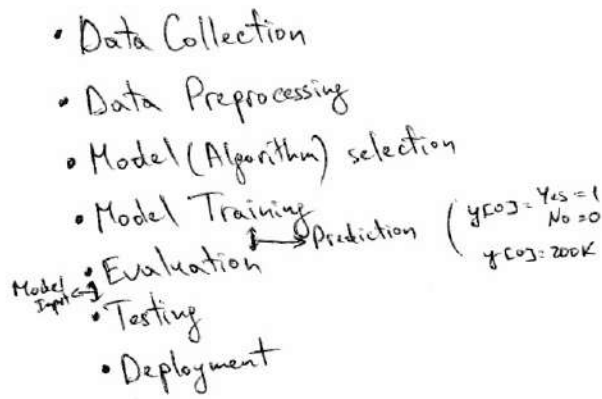 • Data Collection
• Data Preprocessing
• Model (Algorithm) selection
• Model Training
Prediction ( y[0] = Yes = 1
No = 0
y[0] = 200K
• Evaluation
Model Input
• Testing
• Deployment